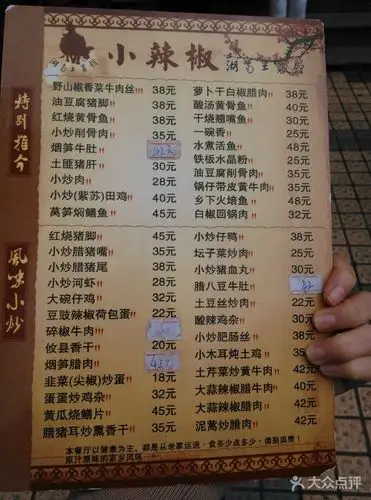 小辣椒
特别推介
野山椒香菜牛肉丝 38元
油豆腐猪脚 38元
红烧黄骨鱼 38元
小炒削骨肉 35元
烟笋牛肚
土匪猪肝 30元
小炒肉 28元
小炒(紫苏)田鸡 40元
莴笋焖鳝鱼 45元
萝卜干白椒腊肉 38元
酸汤黄骨鱼 40元
干烧翘嘴鱼 30元
一碗香 25元
水煮活鱼 48元
铁板水晶粉 25元
锅仔带皮黄牛肉 35元
乡下火焙鱼 48元
白椒回锅肉 32元
风味小炒
红烧猪脚 45元
小炒腊猪嘴 35元
小炒腊猪尾 38元
小炒河虾 28元
大碗仔鸡 32元
豆豉辣椒荷包蛋 22元
碎椒牛肉
攸县香干 20元
烟笋腊肉 42元
韭菜(尖椒)炒蛋 18元
蛋蛋炒鸡杂 32元
黄瓜烧鳝片 45元
腊猪耳炒熏香干 35元
小炒仔鸭 38元
坛子菜炒肉 25元
小炒猪血丸 30元
腊八豆牛肚
土豆丝炒肉 22元
酸辣鸡杂 30元
小炒肥肠丝 38元
小木耳炖土鸡 35
土芹菜炒黄牛肉 42元
大蒜辣椒腊牛肉 40元
大蒜辣椒腊肉 42元
泥蒿炒腊肉 42元
本餐厅以健康为主，都是从老家运送，食多少点多少，请别浪费！
原汁原味的家乡风味
大众点评